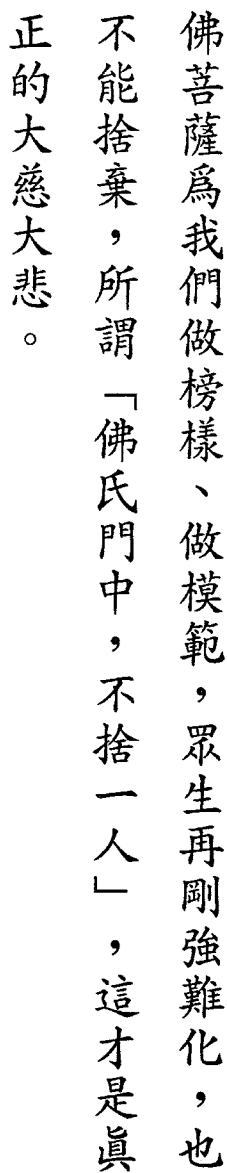 佛菩薩爲我們做榜樣、做模範，眾生再剛強難化，也
不能捨棄，所謂「佛氏門中，不捨一人」，這才是眞
正的大慈大悲。